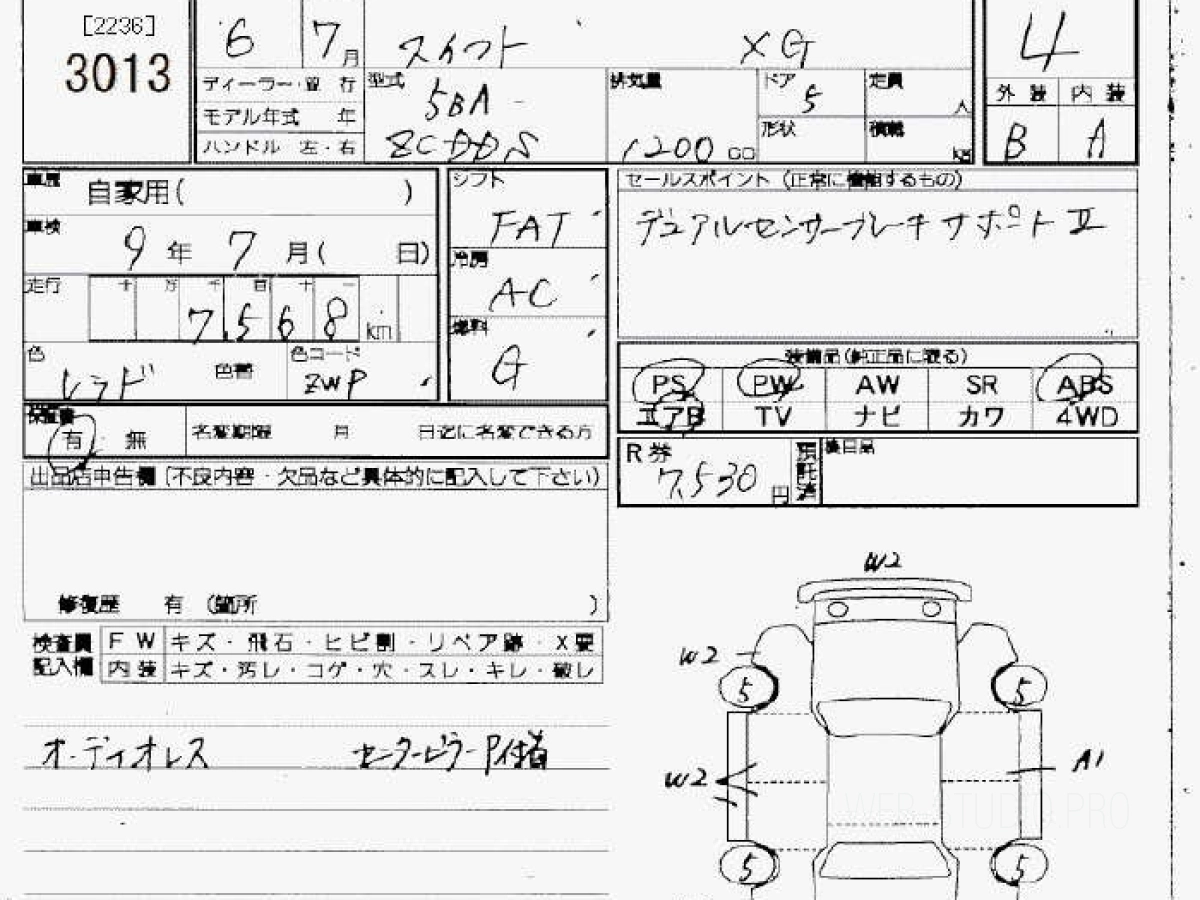 [2236]
3013
6 7月 スイフト XG 4
ディーラー・並行 型式 5BA 排気量 ドア 5 定員 人 外装 内装
モデル年式 年
ハンドル 左・右 ZCDDS 1200 cc 形状 積載 kg B A
車歴 自家用( ) シフト FAT セールスポイント (正常に機能するもの)
車検 9年 7月( 日) 冷房 AC デュアルセンサーブレーキサポートⅡ
走行 十 万 千 百 十 一 7,568 km 燃料 G
色 レッド 色替 色コード ZWP
装備品(純正品に限る)
PS PW AW SR ABS
エアB TV ナビ カワ 4WD
保証書 有 無 名変期限 月 日迄に名変できる方
R券 7,530 円 預託済 後日品
出品店申告欄 (不良内容・欠品など具体的に記入して下さい)
修復歴 有 (箇所 )
検査員記入欄 FW キズ・飛石・ヒビ割・リペア跡・X要
内装 キズ・汚レ・コゲ・穴・スレ・キレ・破レ
オーディオレス センターピラーP付着
W2
W2
5 5
W2 A1
5 5
WEB STUDIO.PRO